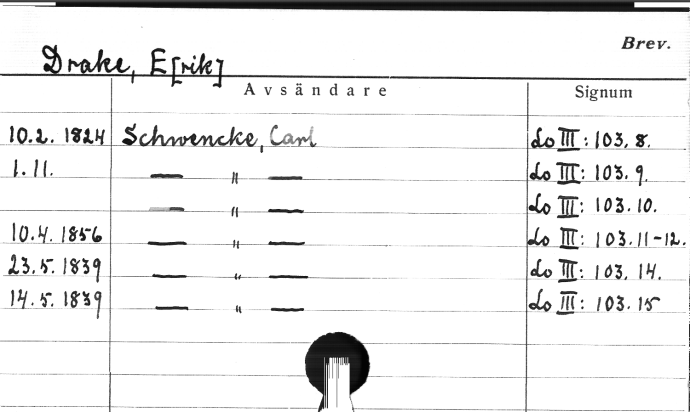 Brev.
Drake, E[rik]
Avsändare Signum
10.2. 1824 Schwencke, Carl Lo III: 103. 8.
1.11. — " — Lo III: 103. 9.
— " — Lo III: 103. 10.
10.4. 1856 — " — Lo III: 103. 11-12.
23.5. 1839 — " — Lo III: 103. 14.
14.5. 1839 — " — Lo III: 103. 15